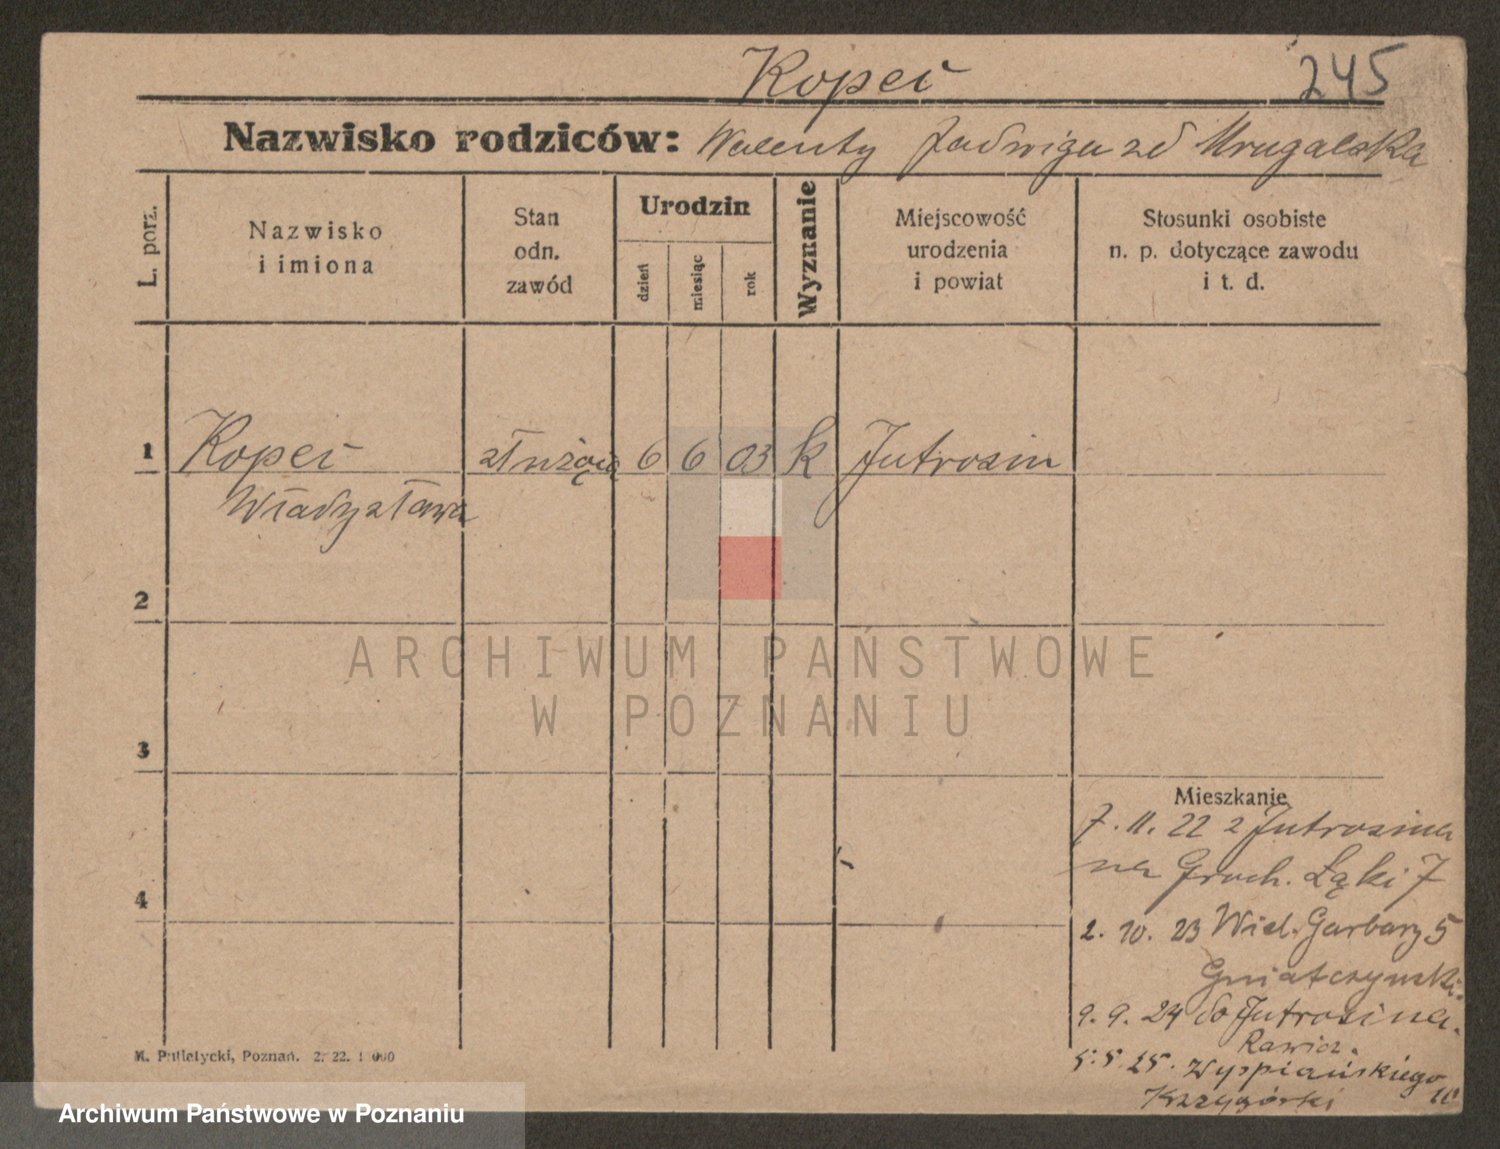 Kopeć 245
Nazwisko rodziców: Walenty Jadwiga zd Mrugalska
L. porz.
Nazwisko
i imiona
Stan
odn.
zawód
Urodzin
dzień
miesiąc
rok
Wyznanie
Miejscowość
urodzenia
i powiat
Stosunki osobiste
n. p. dotyczące zawodu
i t. d.
1 Kopeć służącą 6 6 03 k Jutrosin
Władysława
2
ARCHIWUM PAŃSTWOWE
W POZNANIU
3
Mieszkanie
7. 11. 22 z Jutrosina
na Groch. Łąki 7
4
2. 10. 23 Wiel. Garbary 5
Gniatczyński.
9. 9. 24 do Jutrosina.
Rawicz.
5. 5. 25. Wyspiańskiego
Krzyżórski
M. Putiatycki, Poznań. 2. 22. 1 000
Archiwum Państwowe w Poznaniu